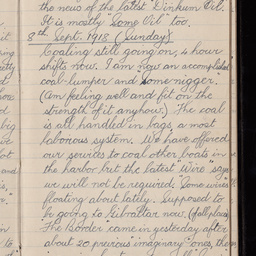 the news of the latest "Dinkum Oil.
It is mostly "Some Oil" too.
8th Sept. 1918 (Sunday)
Coaling still going on, 6 hour
shifts now. I am now an accomplished
coal-lumper and "some nigger".
(Am feeling well and fit on the
strength of it anyhow.) The coal
is all handled in bags, a most
laborous system. We have offered
our services to coal other boats in
the harbor but the latest "Wire" says
we will not be required. "Some wires"
floating about lately. Supposed to
be going to Gibraltar now. (of all places)
The "Border" came in yesterday after
about 20 previous imaginary "ones, the